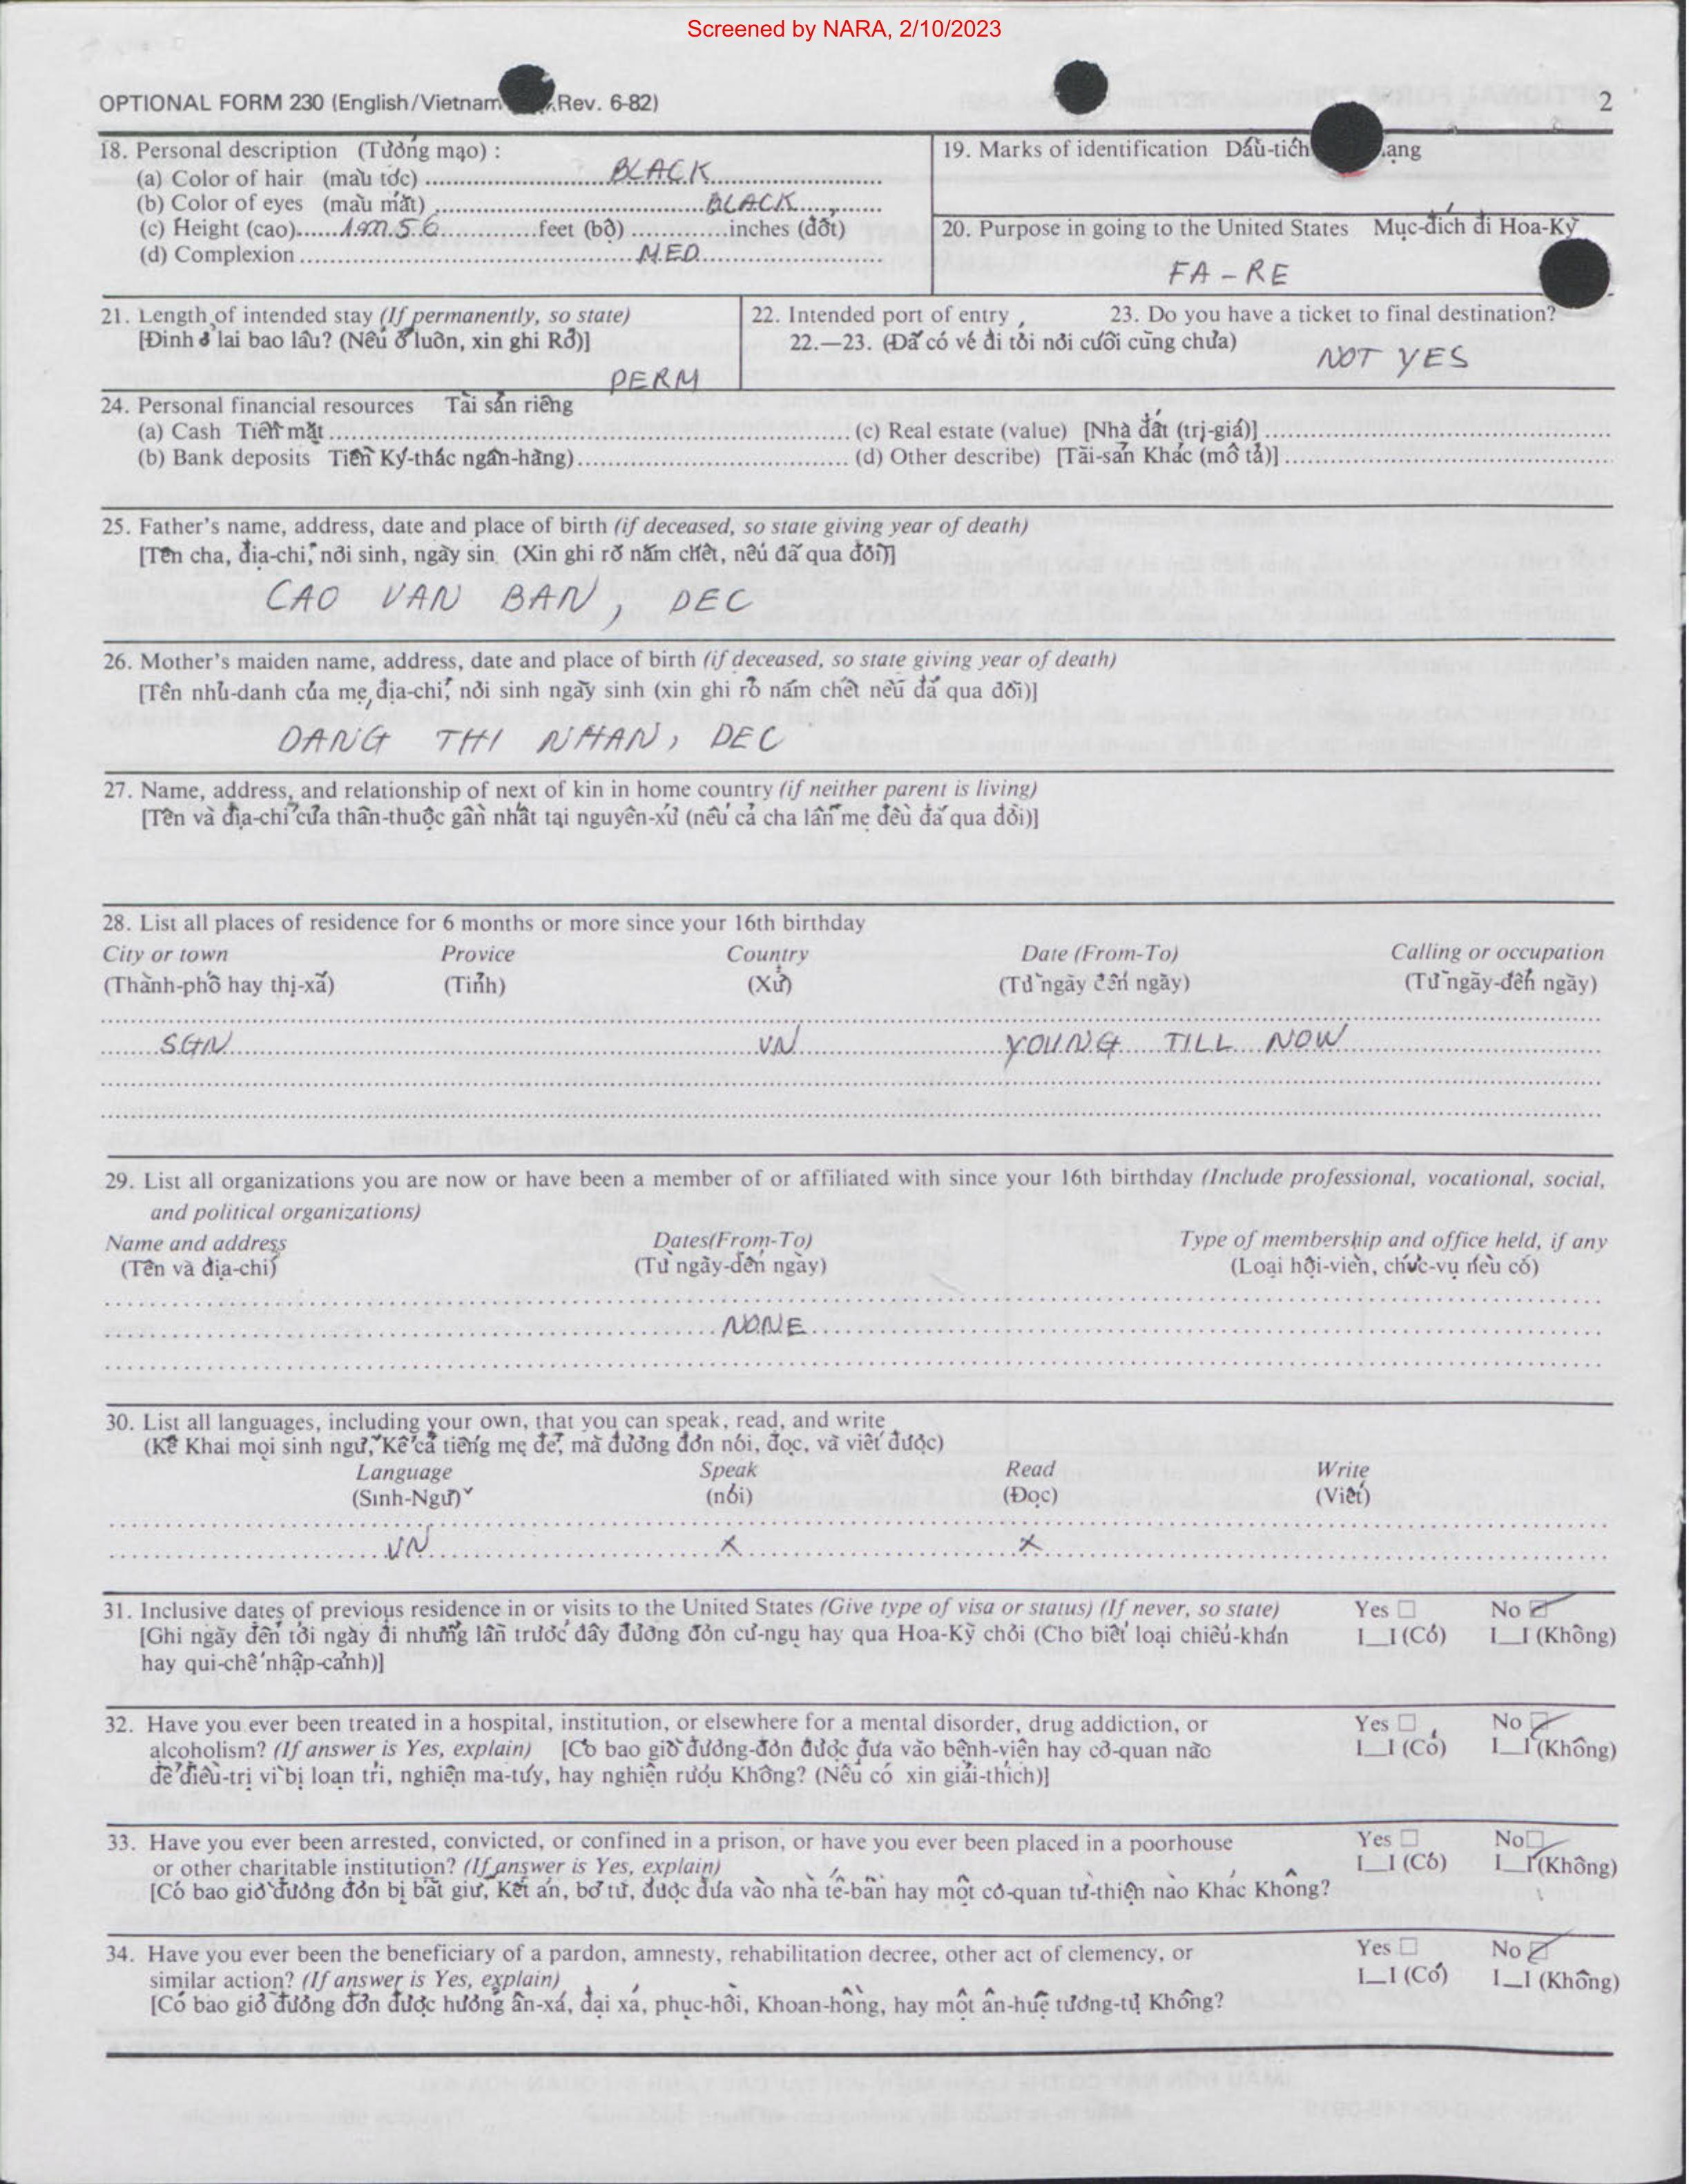 Screened by NARA, 2/10/2023
OPTIONAL FORM 230 (English/Vietnam Rev. 6-82)
2
18. Personal description (Tướng mạo) :
(a) Color of hair (màu tóc) BLACK
(b) Color of eyes (màu mắt) BLACK
(c) Height (cao) 1m56 feet (bộ) inches (đốt)
(d) Complexion MED
19. Marks of identification Dấu-tích ạng
20. Purpose in going to the United States Mục-đích đi Hoa-Kỳ
FA - RE
21. Length of intended stay (If permanently, so state)
[Đinh ở lai bao lâu? (Nếu ở luôn, xin ghi Rõ)]
PERM
22. Intended port of entry 23. Do you have a ticket to final destination?
22.—23. (Đã có vé đi tới nơi cuối cùng chưa)
NOT YES
24. Personal financial resources Tài sản riêng
(a) Cash Tiền mặt (c) Real estate (value) [Nhà đất (trị-giá)]
(b) Bank deposits Tiền Ký-thác ngân-hàng) (d) Other describe) [Tài-sản Khác (mô tả)]
25. Father's name, address, date and place of birth (if deceased, so state giving year of death)
[Tên cha, địa-chỉ, nơi sinh, ngày sin (Xin ghi rõ năm chết, nếu đã qua đời)]
CAO VAN BAN, DEC
26. Mother's maiden name, address, date and place of birth (if deceased, so state giving year of death)
[Tên nhũ-danh của mẹ, địa-chỉ, nơi sinh ngày sinh (xin ghi rõ năm chết nếu đã qua đời)]
DANG THI NHAN, DEC
27. Name, address, and relationship of next of kin in home country (if neither parent is living)
[Tên và địa-chỉ của thân-thuộc gần nhất tại nguyên-xứ (nếu cả cha lẫn mẹ đều đã qua đời)]
28. List all places of residence for 6 months or more since your 16th birthday
City or town Provice Country Date (From-To) Calling or occupation
(Thành-phố hay thị-xã) (Tỉnh) (Xứ) (Từ ngày đến ngày) (Từ ngày-đến ngày)
SGN VN YOUNG TILL NOW
29. List all organizations you are now or have been a member of or affiliated with since your 16th birthday (Include professional, vocational, social,
and political organizations)
Name and address Dates(From-To) Type of membership and office held, if any
(Tên và địa-chỉ) (Từ ngày-đến ngày) (Loại hội-viên, chức-vụ nếu có)
NONE
30. List all languages, including your own, that you can speak, read, and write
(Kê Khai mọi sinh ngữ, Kê cả tiếng mẹ đẻ, mà đương đơn nói, đọc, và viết được)
Language Speak Read Write
(Sinh-Ngữ) (nói) (Đọc) (Viết)
VN X X
31. Inclusive dates of previous residence in or visits to the United States (Give type of visa or status) (If never, so state) Yes No
[Ghi ngày đến tới ngày đi những lần trước đây đương đơn cư-ngụ hay qua Hoa-Kỳ chơi (Cho biết loại chiếu-khán I__I (Có) I__I (Không)
hay qui-chế nhập-cảnh)]
32. Have you ever been treated in a hospital, institution, or elsewhere for a mental disorder, drug addiction, or Yes No
alcoholism? (If answer is Yes, explain) [Có bao giờ đương-đơn được đưa vào bệnh-viện hay cơ-quan nào I__I (Có) I__I (Không)
để điều-trị vì bị loạn trí, nghiện ma-túy, hay nghiện rượu Không? (Nếu có xin giải-thích)]
33. Have you ever been arrested, convicted, or confined in a prison, or have you ever been placed in a poorhouse Yes No
or other charitable institution? (If answer is Yes, explain) I__I (Có) I__I (Không)
[Có bao giờ đương đơn bị bắt giữ, Kết án, bỏ tù, được đưa vào nhà tế-bần hay một cơ-quan từ-thiện nào Khác Không?
34. Have you ever been the beneficiary of a pardon, amnesty, rehabilitation decree, other act of clemency, or Yes No
similar action? (If answer is Yes, explain) I__I (Có) I__I (Không)
[Có bao giờ đương đơn được hưởng ân-xá, đại xá, phục-hồi, Khoan-hồng, hay một ân-huệ tương-tự Không?